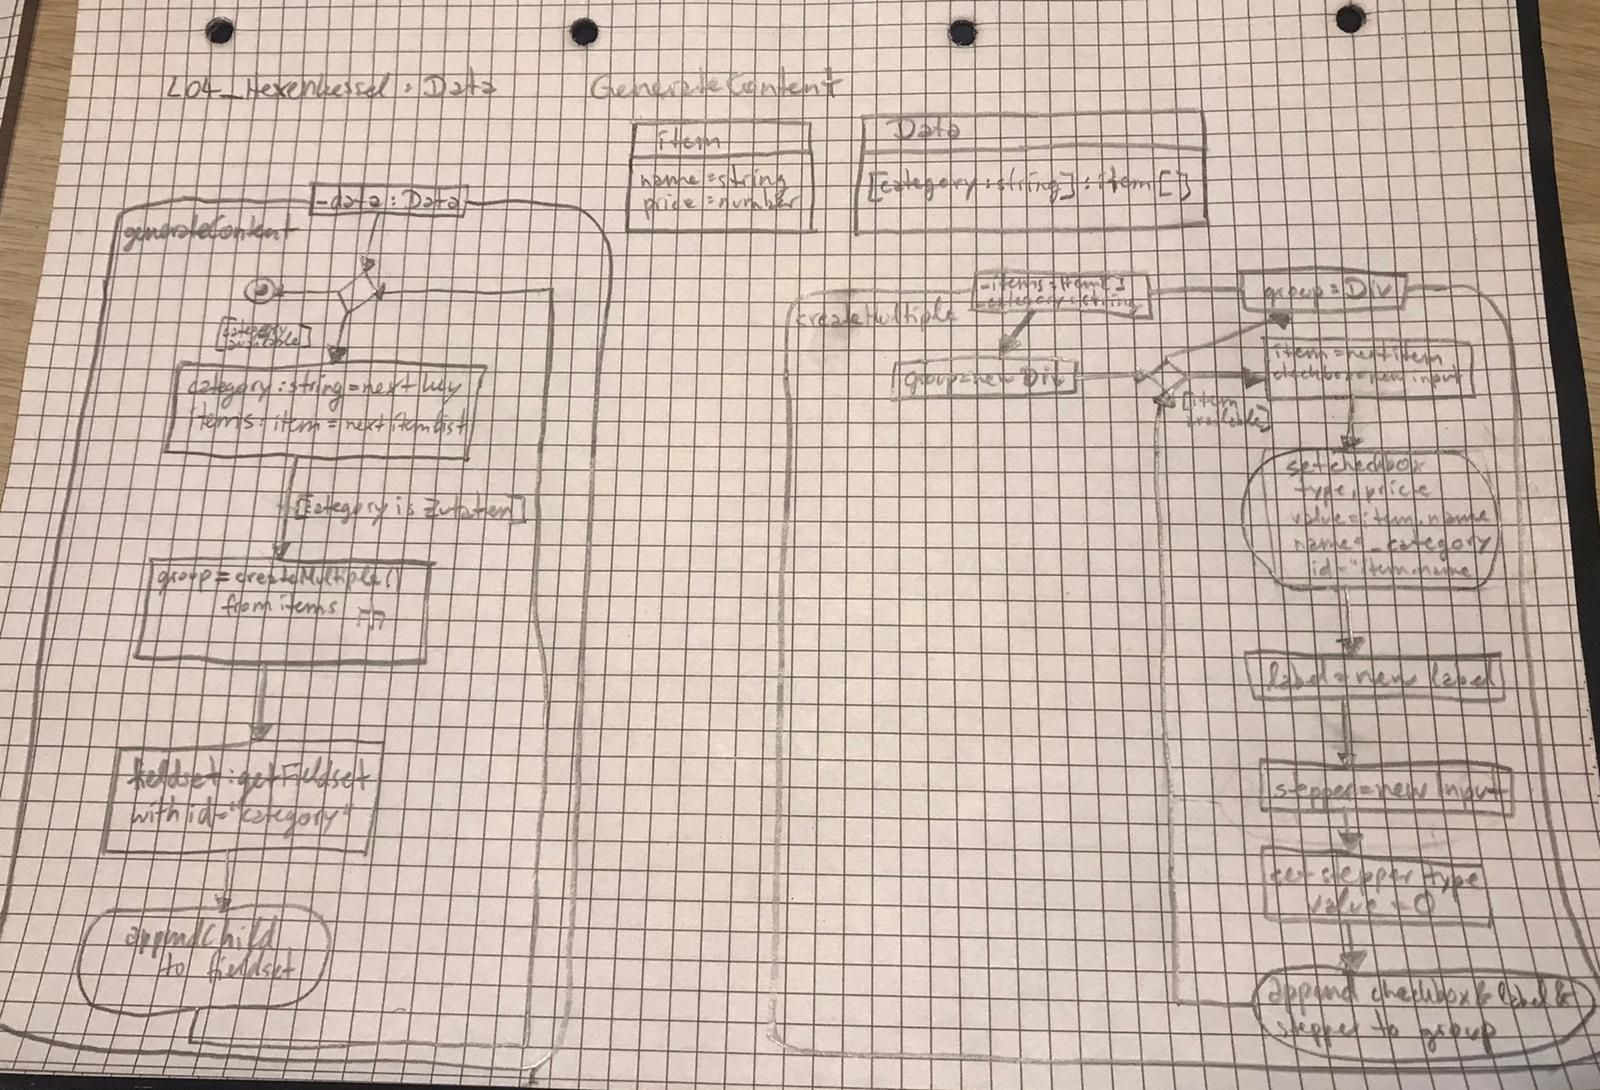 L04_Hexenkessel : Data
GenerateContent
item
name = string
price = number
Data
[category : string] : item []
- data : Data
generateContent
[category
available]
category : string = next key
items : item = next item list
[category is Zutaten]
group = createMultiple()
from items
fieldset : getFieldset
with id = "category"
appendChild
to fieldset
- items : Item []
- category : string
createMultiple
group = Div
group = new Div
item = next item
checkbox = new input
[item
available]
set checkbox
type, price
value = item.name
name = _category
id = item.name
label = new label
stepper = new Input
set stepper type
value = 0
append checkbox & label &
stepper to group